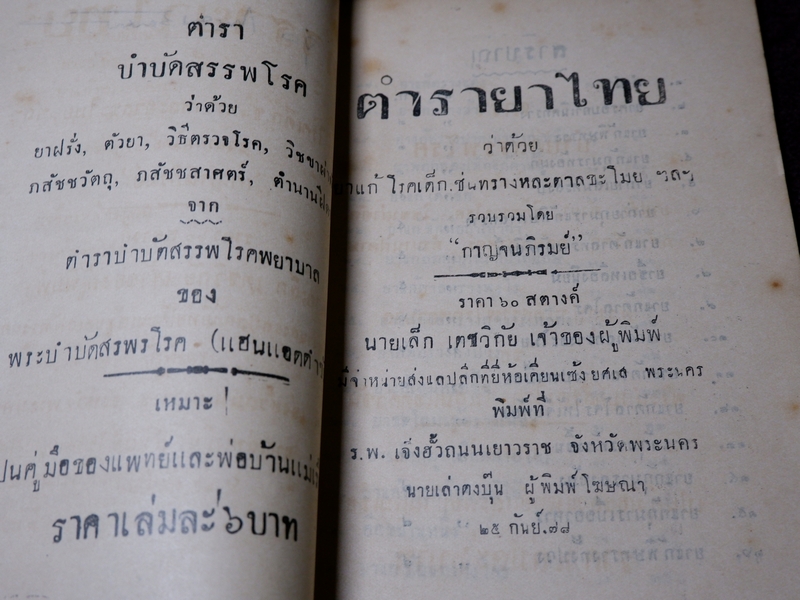 ตำรา
บำบัดสรรพโรค
ว่าด้วย
ยาฝรั่ง, ตัวยา, วิธีตรวจโรค, วิชชา
ภสัชชวัตถุ, ภสัชชสาศตร์, ตำนาน
จาก
ตำราบำบัดสรรพโรคพยาบาล
ของ
พระบำบัดสรพรโรค (แฮนแอดดำ
เหมาะ
ปนคู่มือของแพทย์และพ่อบ้านแม่
ราคาเล่มละ ๖ บาท
ตำรายาไทย
ว่าด้วย
ยาแก้โรคเด็ก.ซ่นทรางหละตาลซะไมย ฯลฯ
รวบรวมโดย
"กาญจนภิรมย์"
ราคา ๖๐ สตางค์
นายเล็ก เตชวิกัย เจ้าของผู้พิมพ์
มีจำหน่ายส่งแลปลีกที่ยี่ห้อเคี่ยนเซ้ง ยศเส พระนคร
พิมพ์ที่
ร.พ. เจ็งฮั้วถนนเยาวราช จังหวัดพระนคร
นายเล่าตงบุ๊น ผู้พิมพ์โฆษณา
๒๕ กันย์.๗๘